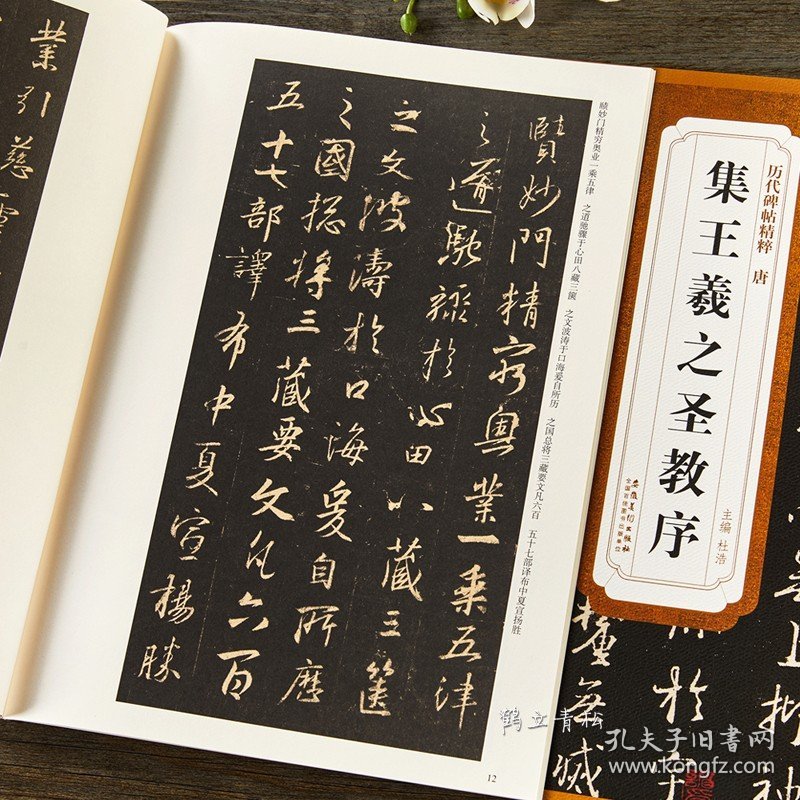 業引慈雲
賾妙門精窮奥業一乘五津
之道馳驟於心田八藏三篋
之文波濤於口海爰自所歷
之國揔將三藏要文凡六百
五十七部譯布中夏宣揚勝
赜妙门精穷奥业一乘五律 之道驰骤于心田八藏三箧 之文波涛于口海爰自所历 之国总将三藏要文凡六百 五十七部译布中夏宣扬胜
12
历代碑帖精粹 唐
集王羲之圣教序
主编 杜浩
安徽美术出版社
全国百佳图书出版单位
鹤立青松
孔夫子旧书网
www.kongfz.com